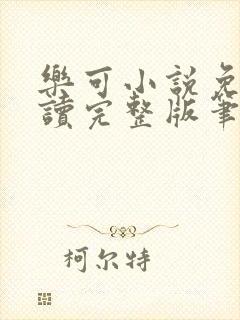 樂可小説免
讀完整版筆
柯尔特